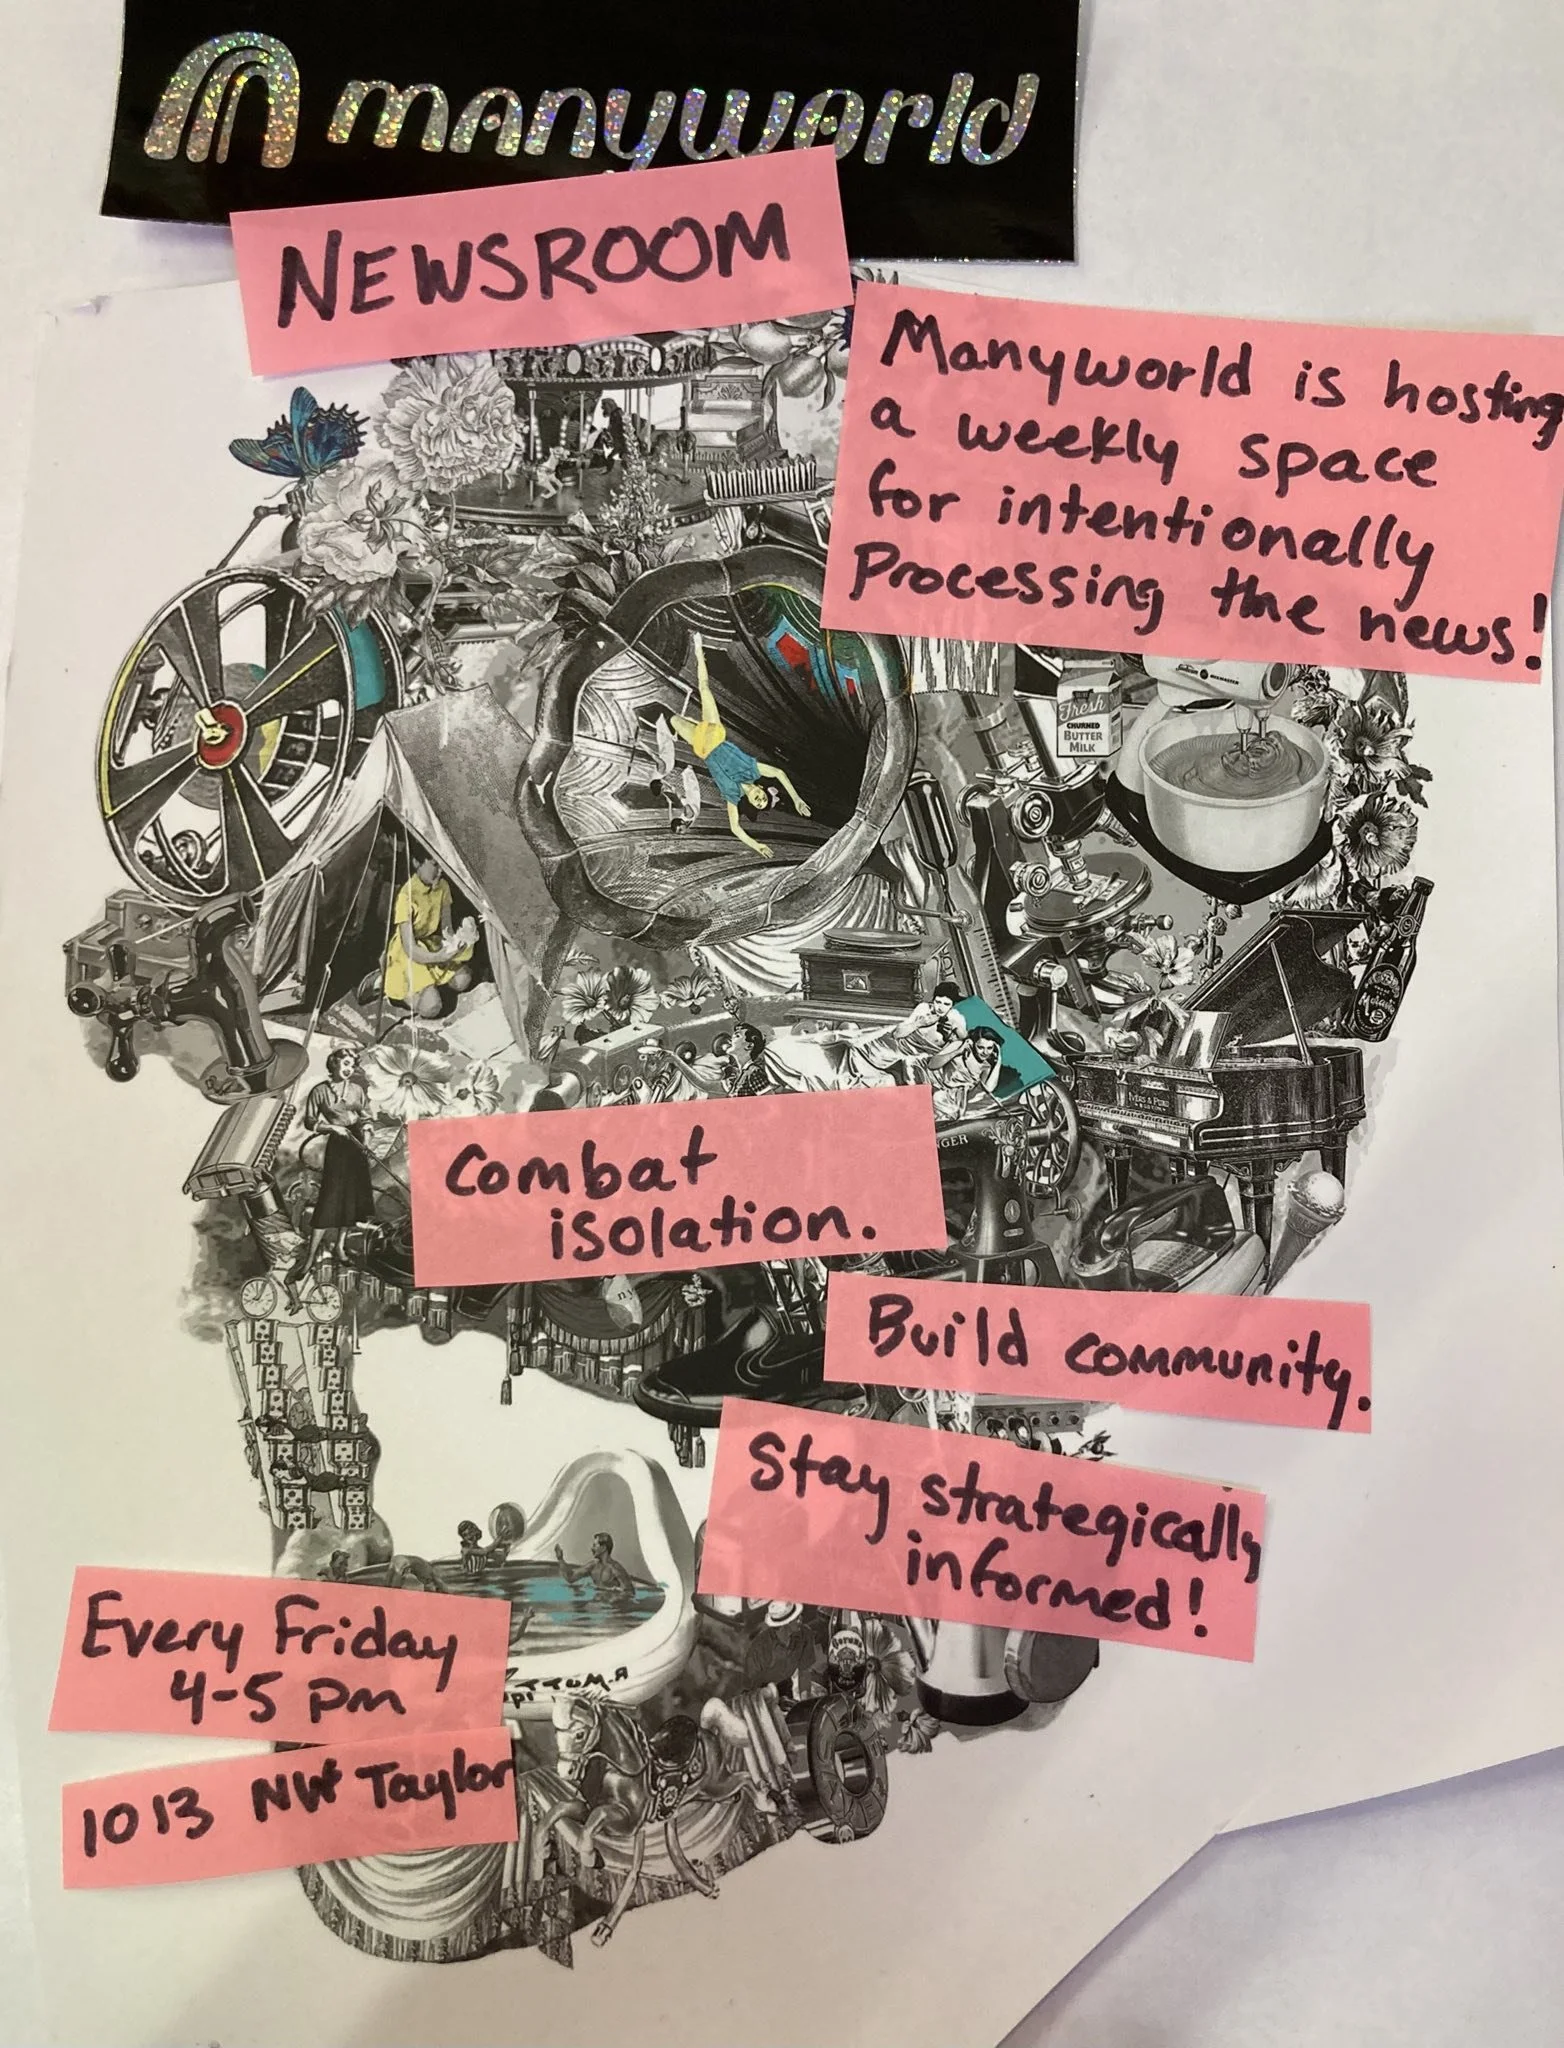 manyworld
NEWSROOM
Manyworld is hosting
a weekly space
for intentionally
Processing the news!
MIXMASTER
Fresh
CHURNED
BUTTER
MILK
Combat
isolation.
Build community.
Stay strategically
informed!
Every Friday
4-5 pm
1013 NW Taylor